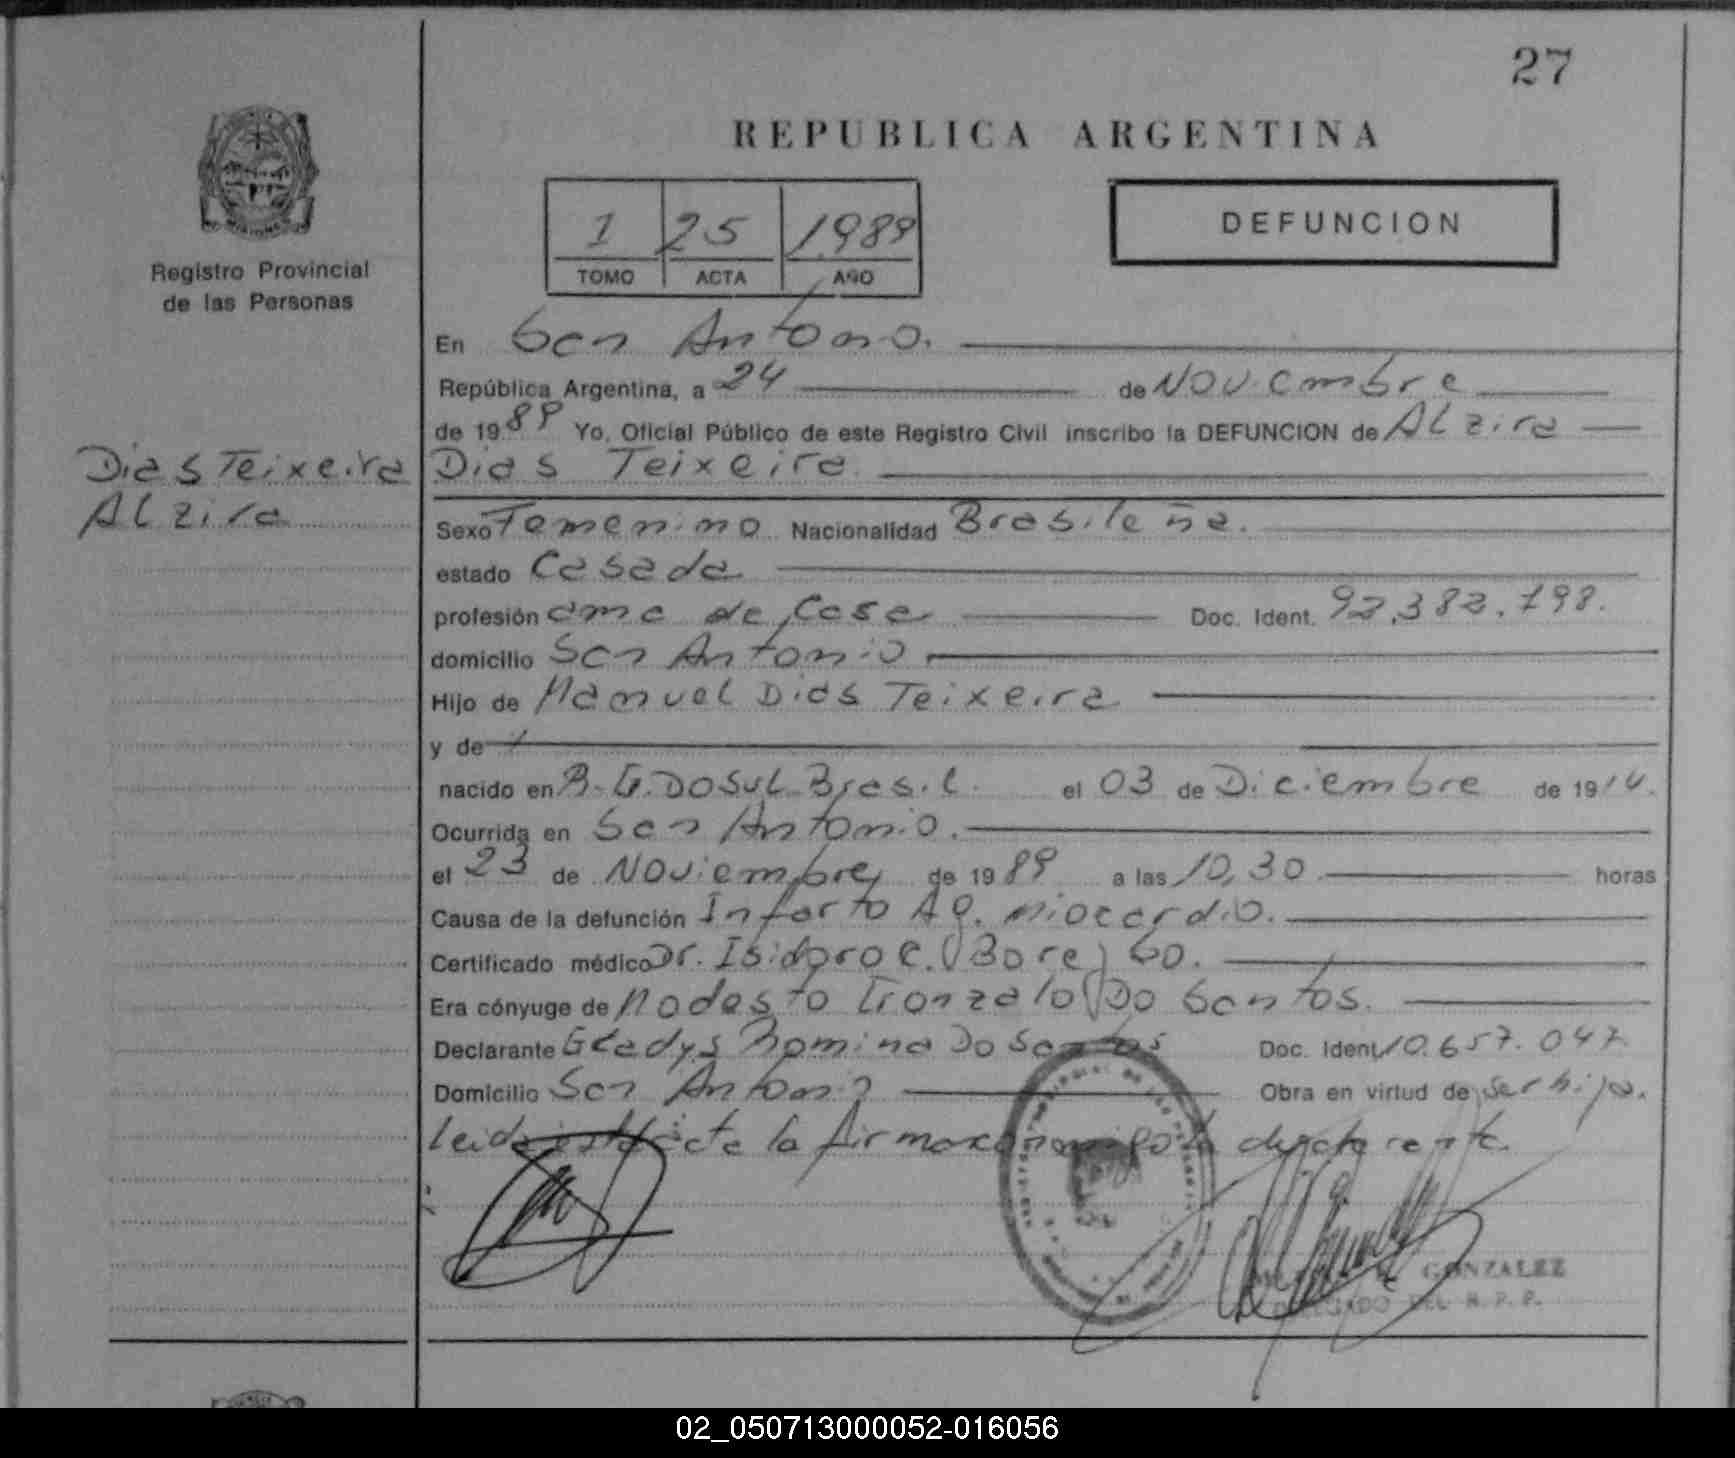 27
REPUBLICA ARGENTINA
1 25 1989
TOMO ACTA AÑO
DEFUNCION
Registro Provincial
de las Personas
En San Antonio.
República Argentina, a 24 de Noviembre
de 1989 Yo, Oficial Público de este Registro Civil inscribo la DEFUNCION de Alzira
Dias Teixeira
Dias Teixeira
Alzira
Sexo Femenino Nacionalidad Brasileña.
estado Casada
profesión ama de Casa Doc. Ident. 92.382.798.
domicilio San Antonio
Hijo de Manuel Dias Teixeira
y de
nacido en R.G. DO SUL Brasil. el 03 de Diciembre de 1914.
Ocurrida en San Antonio.
el 23 de Noviembre de 1989 a las 10,30 horas
Causa de la defunción Infarto Ag. miocardio.
Certificado médico Dr. Isidoro C.
Era cónyuge de Modesto Gonzalo Do Santos.
Declarante Gladys Romina Do Santos Doc. Ident. 10.657.047
Domicilio San Antonio Obra en virtud de ser hija.
leida esta acta la firma conmigo la declarante.
GONZALEZ
DELEGADO DEL R. P. P.
02_050713000052-016056